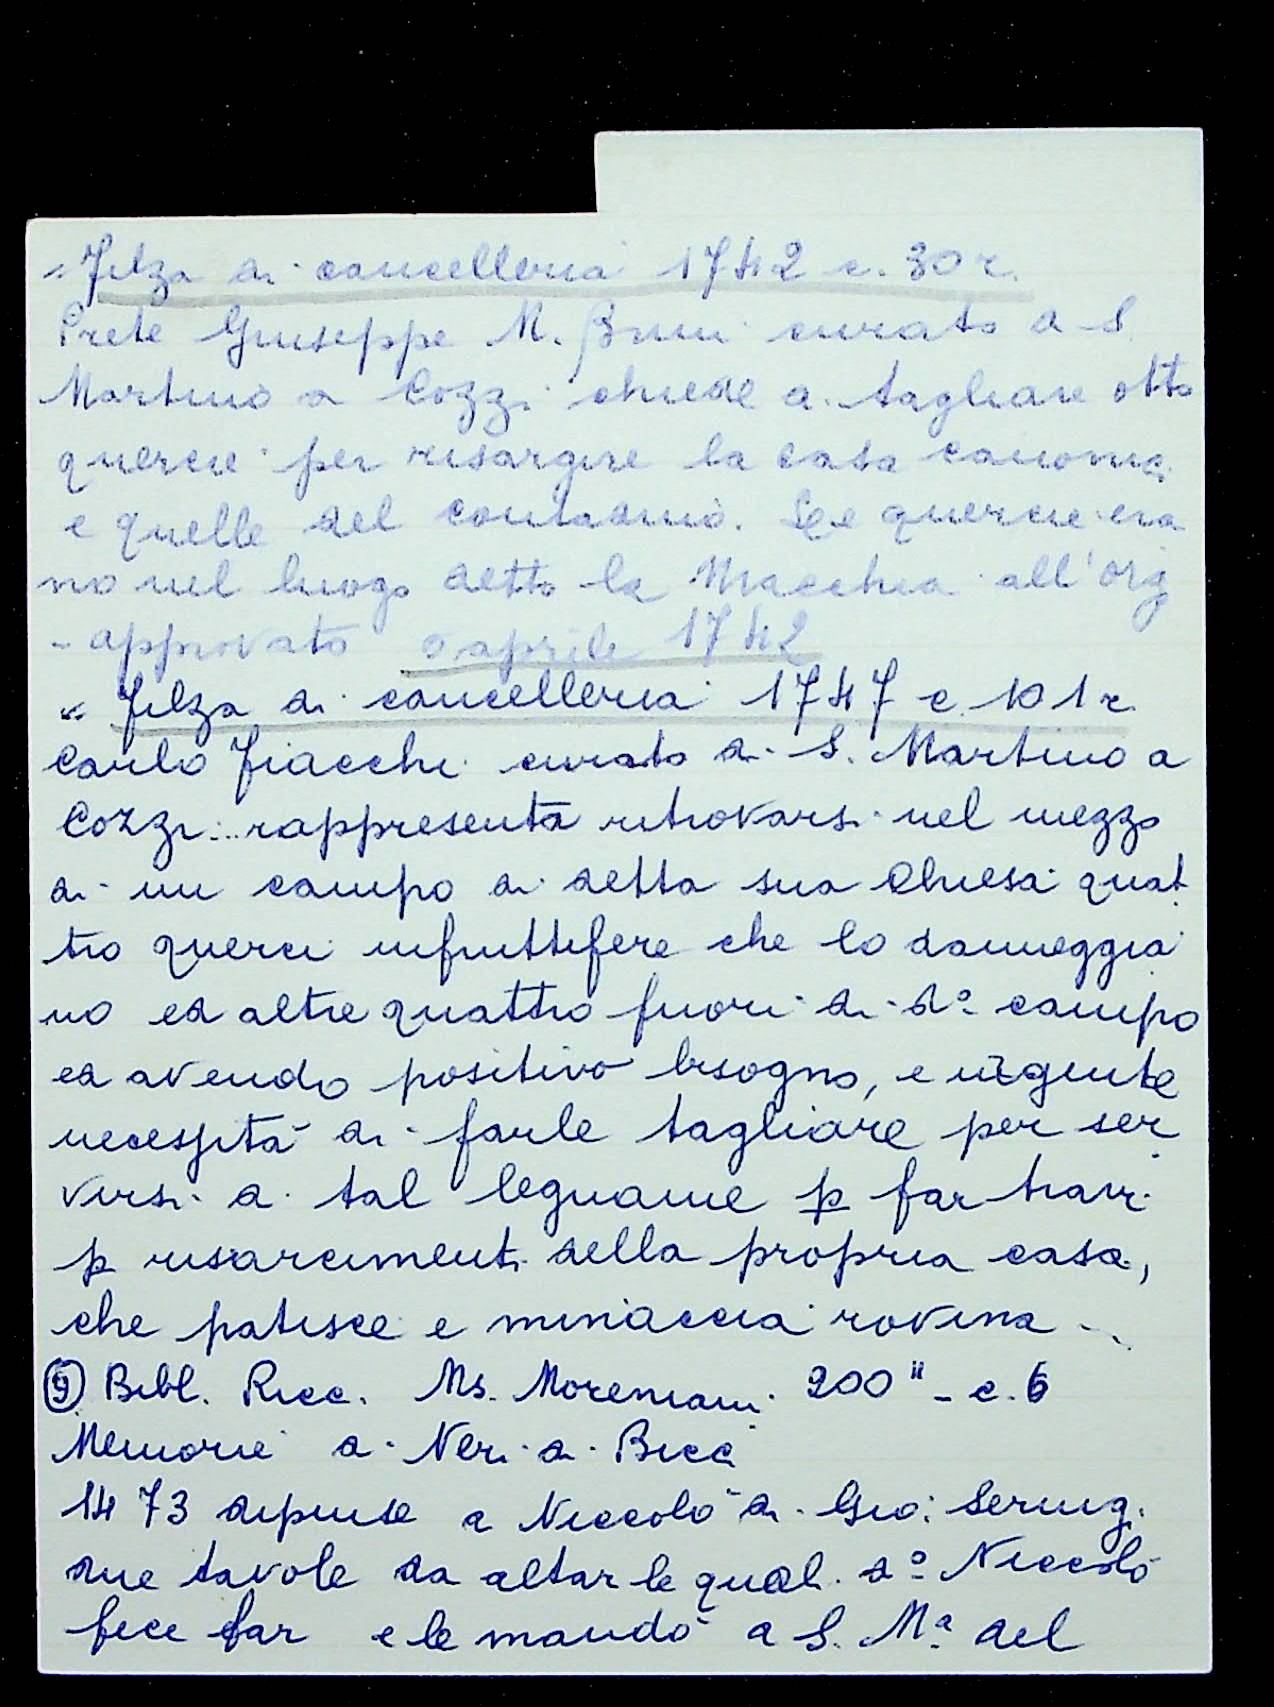 " Filza di cancelleria 1742 c. 30 r.
Prete Giuseppe M. Bruni curato a S
Martino a Cozzi chiede di tagliare otto
quercie per risargire la casa canonica
e quelle del contadino. Le quercie era
no nel luogo detto la Macchia all'
- approvato aprile 1742
" Filza di cancelleria 1747 c. 101 r.
Carlo Fiacchi curato di S. Martino a
Cozzi: rappresenta ritrovarsi nel mezzo
di un campo di detta sua Chiesa quat
tro querci infruttifere che lo danneggia
no ed altre quattro fuori di d.º campo
ed avendo positivo bisogno, e urgente
necessità di farle tagliare per ser
virsi di tal legname p far travi
p risarcimenti della propria casa,
che patisce e minaccia rovina -..
⑨ Bibl. Ricc. Ms. Moreniani 200" - c. 6
Memorie di Neri di Bicci
1473 dipinse a Niccolò di Gio: Sernig.
due tavole da altar le quali d.º Niccolò
fece far e le mandò a S. M.ª del